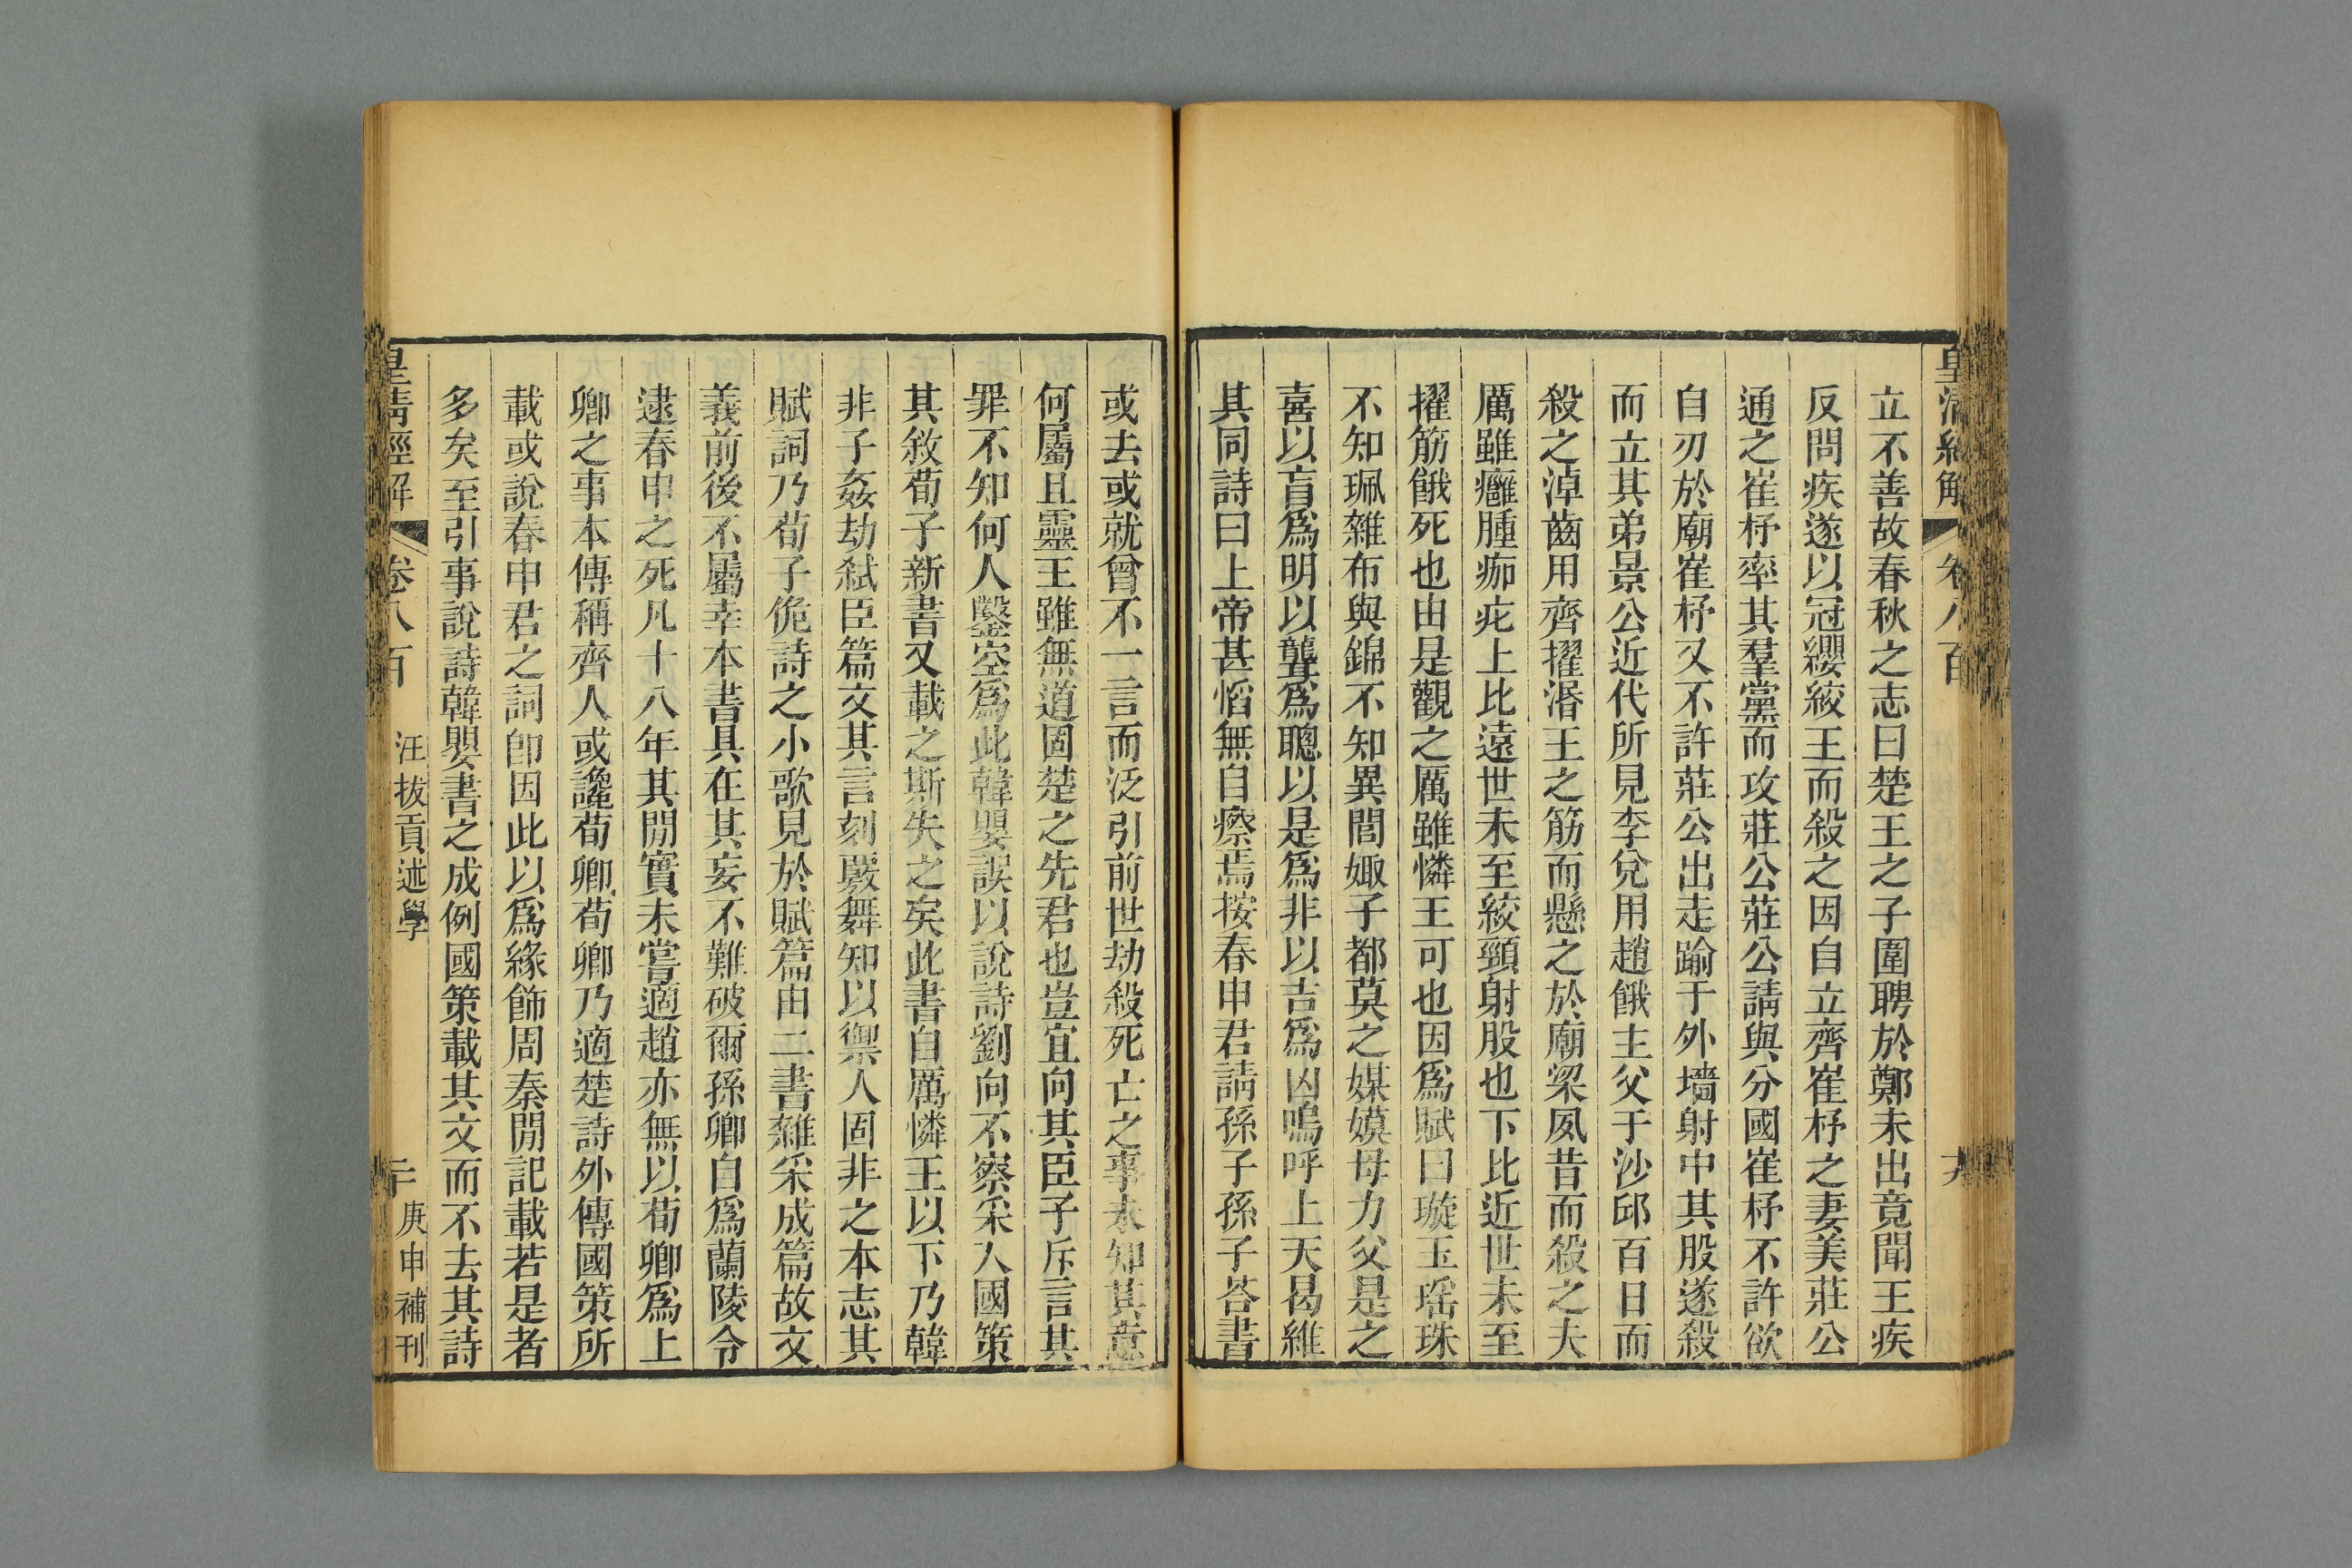 皇清經解 卷八百 十九
立不善故春秋之志曰楚王之子圍聘於鄭未出竟聞王疾
反問疾遂以冠纓絞王而殺之因自立齊崔杼之妻美莊公
通之崔杼率其羣黨而攻莊公莊公請與分國崔杼不許欲
自刃於廟崔杼又不許莊公出走踰于外墻射中其股遂殺
而立其弟景公近代所見李兌用趙餓主父于沙邱百日而
殺之淖齒用齊擢湣王之筋而懸之於廟梁夙昔而殺之夫
厲雖癰腫痂疕上比遠世未至絞頸射股也下比近世未至
擢筋餓死也由是觀之厲雖憐王可也因爲賦曰璇玉瑶珠
不知珮雜布與錦不知異閭娵子都莫之媒嫫母力父是之
喜以盲爲明以聾爲聰以是爲非以吉爲凶嗚呼上天曷維
其同詩曰上帝甚慆無自瘵焉按春申君請孫子孫子荅書
或去或就曾不一言而泛引前世劫殺死亡之事未知其意
何屬且靈王雖無道固楚之先君也豈宜向其臣子斥言其
罪不知何人鑿空爲此韓嬰誤以說詩劉向不察采入國策
其敘荀子新書又載之斯失之矣此書自厲憐王以下乃韓
非子姦劫弑臣篇文其言刻覈舞知以禦人固非之本志其
賦詞乃荀子佹詩之小歌見於賦篇由二書雜采成篇故文
義前後不屬幸本書具在其妄不難破爾孫卿自爲蘭陵令
逮春申之死凡十八年其閒實未嘗適趙亦無以荀卿爲上
卿之事本傳稱齊人或讒荀卿荀卿乃適楚詩外傳國策所
載或說春申君之詞卽因此以爲緣飾周秦閒記載若是者
多矣至引事說詩韓嬰書之成例國策載其文而不去其詩
皇清經解 卷八百 汪拔貢述學 二十 庚申補刊